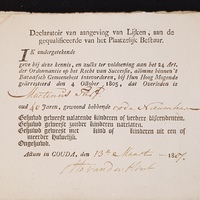 Declaratoir van aangeving van Lijken, aan de
gequalificeerde van het Plaatzelijk Bestuur.
IK ondergetekende
geve bij dezen kennis, en zulks ter voldoening aan het 24 Art,
der Ordonnantie op het Recht van Successie, alömme binnen 't
Bataafsch Gemeenebest intevorderen, bij Hun Hoog Mogende
geärresteerd den 4 October 1805, dat Overleden is
Martinus
oud 40 Jaren, gewoond hebbende
Gehuwd geweest nalatende kinderen of verdere descendenten.
Gehuwd geweest zonder kinderen.
Gehuwd geweest met kind of kinderen uit een of
meerder Huwelijken.
Ongehuwd.
Actum in GOUDA, den 13e Maart 1807.